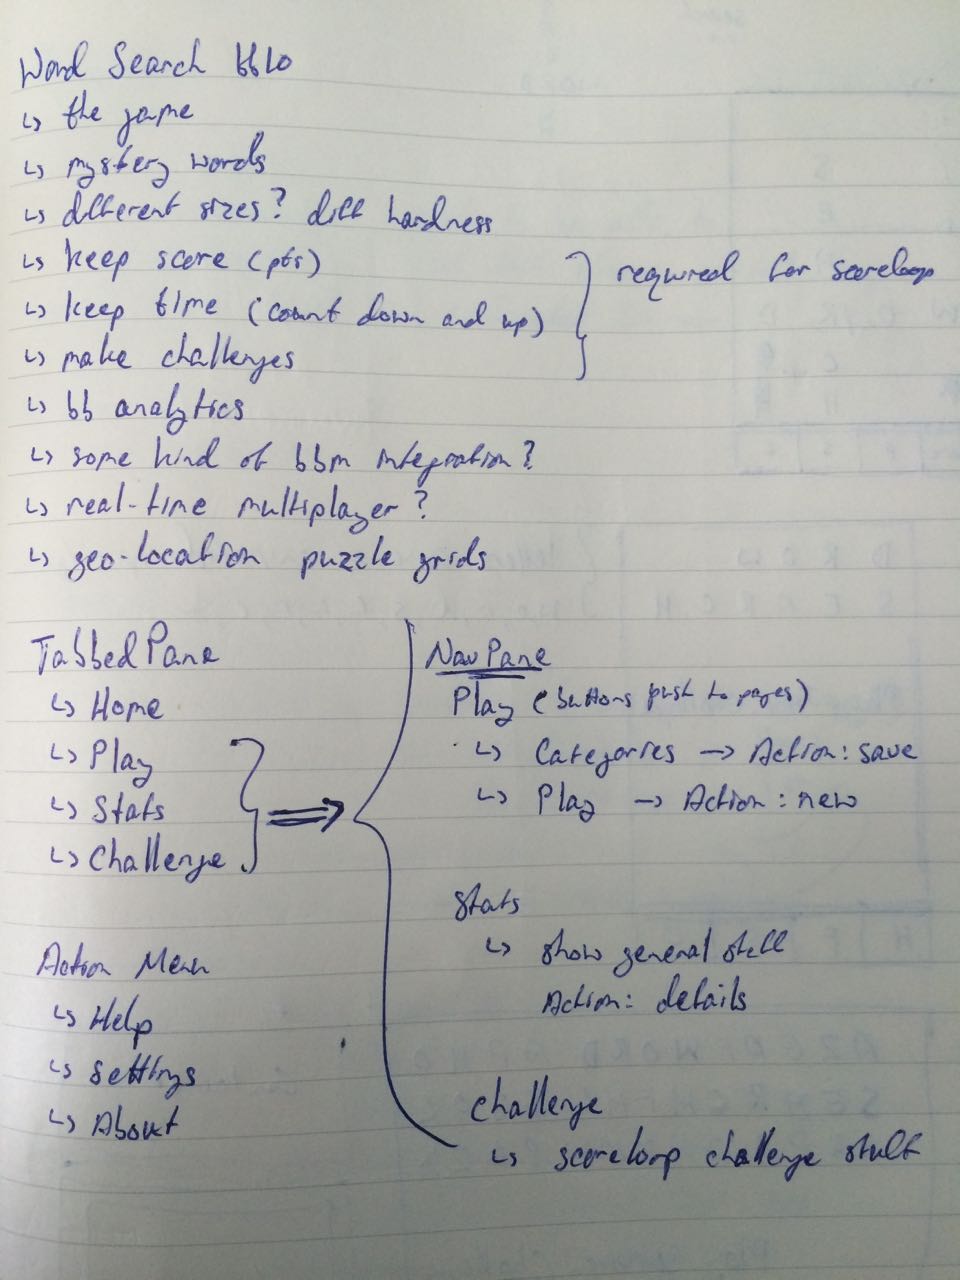 Word Search bb10
↳ the game
↳ mystery words
↳ different sizes? diff hardness
↳ keep score (pts)
↳ keep time (count down and up)
↳ make challenges
} required for scoreloop
↳ bb analytics
↳ some kind of bbm integration?
↳ real-time multiplayer?
↳ geo-location puzzle grids
TabbedPane
↳ Home
↳ Play
↳ Stats
↳ Challenge
Action Menu
↳ Help
↳ Settings
↳ About
NavPane
Play (buttons push to pages)
↳ Categories → Action: save
↳ Play → Action: new
Stats
↳ show general stuff
Action: details
Challenge
↳ scoreloop challenge stuff